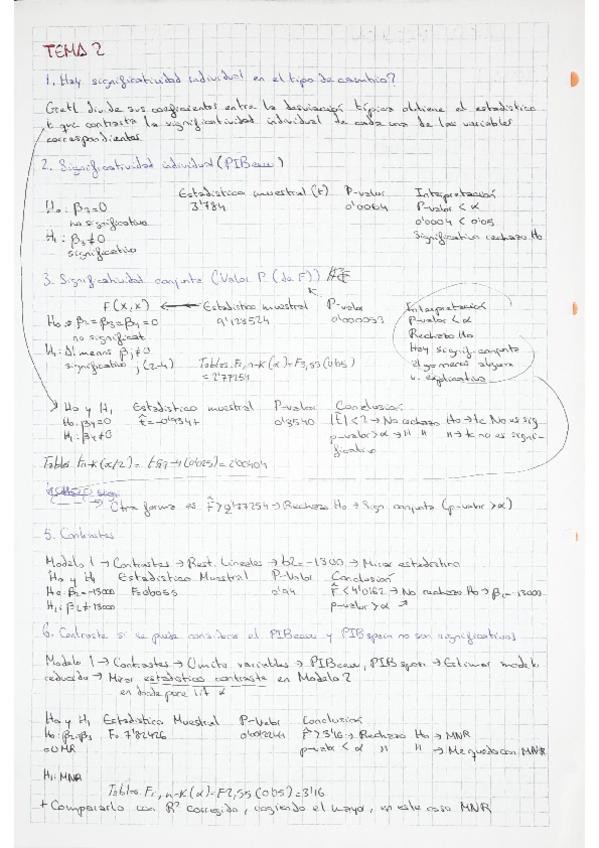 TEMA 2
1. Hay significatividad individual en el tipo de cambio?
Gretl divide sus coeficientes entre la desviación típica obtiene el estadístico
t que contrasta la significatividad individual de cada una de las variables
correspondientes
2. Significatividad individual (PIBeeuu)
Estadístico muestral (t) P-valor Interpretación
H0: β3=0 3'784 P-valor < α
no significativo 0'0004 < 0'05
H1: β3≠0 Significativo rechazo H0
significativo
3. Significatividad conjunta (Valor P (de F))
F(x,x) ← Estadístico muestral P-valor Interpretación
H0: β2=β3=β4=0 9'128524 0'000053 p-valor < α
no significat. Rechazo H0
H1: Al menos βj≠0 Hay signif. conjunta
significativo j(2-4) Tablas. F3,n-K(α)=F3,55(0'05) al menos alguna
=2'77254 v. explicativa
H0 y H1 Estadístico muestral P-valor Conclusión
H0: β4=0 0'3540 |t|<2 → No rechazo H0 → tc No es sig-
H1: β4≠0 p-valor>α → " " " → tc no es signifi-
ficativo
Tablas tn-K(α/2) = (0'025) = 2'00404
Otra forma es F̂>2'77254 → Rechazo H0 → Sign. conjunta (p-valor>α)
5. Contrastes
Modelo 1 → Contrastes → Rest. Lineales → b2=-1300 → Mirar estadístico
H0 y H1 Estadístico Muestral P-Valor Conclusión
H0: β2=-13000 F̂<4'0162 → No rechazo H0 →
H1: β2≠-13000 p-valor>α
6. Contraste si se puede considerar el PIBeeuu y PIBspain no son significativos
Modelo 1 → Contrastes → Omitir variables → PIBeeuu, PIBspain → Estimar modelo
reducido → Mirar estadístico contraste en Modelo 2
en donde pone
H0 y H1 Estadístico Muestral P-Valor Conclusión
H0: β2=β3 F̂>3'16 → Rechazo H0 → MNR
=0 MR p-valor < α " " → Me quedo con MNR
H1: MNR
Tablas. Fr, n-K(α)=F2,55(0'05)=3'16
+ Compararlo con R² corregido, cogiendo el mayor, en este caso MNR